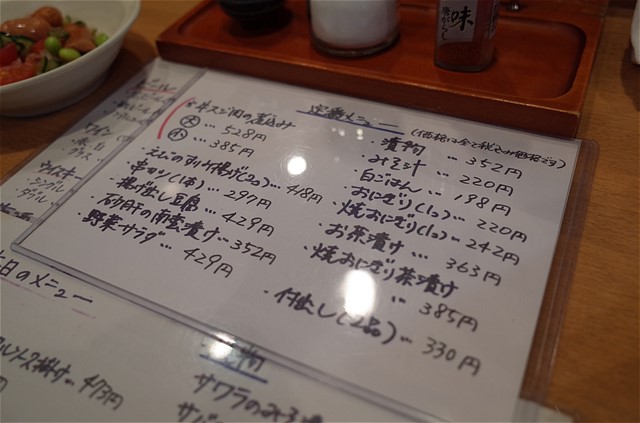 味
定番メニュー
(価格は全て税込み価格です)
牛スジ肉の煮込み
大 … 528円
小 … 385円
・えびのすり身揚げ(2コ) … 418円
・串カツ(1本) … 297円
・揚げ出し豆腐 … 429円
・砂肝の南蛮漬け … 352円
・野菜サラダ … 429円
・漬物 … 352円
・みそ汁 … 220円
・白ごはん … 198円
・おにぎり(1コ) … 220円
・焼おにぎり(1コ) … 242円
・お茶漬け … 363円
・焼おにぎり茶漬け
… 385円
・付出し(2品) … 330円
ワイン
グラス
ウイスキー
シングル
ダブル
日のメニュー
473円
サワラのみそ漬